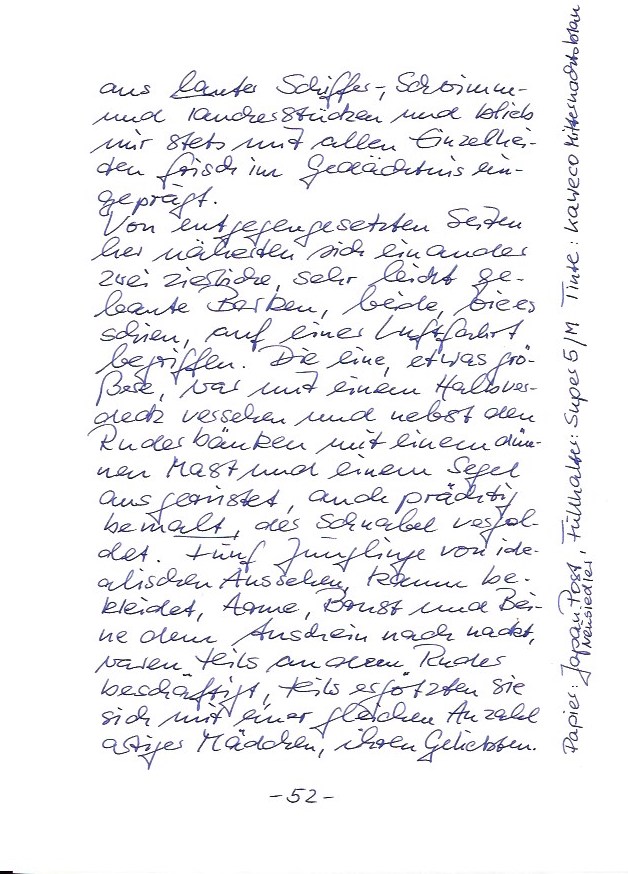 aus lauter Schiffer-, Schwimm-
und Taucherstücken und blieb
mir stets mit allen Einzelhei-
ten frisch im Gedächtnis ein-
geprägt.
Von entgegengesetzten Seiten
her näherten sich einander
zwei zierliche, sehr leicht ge-
baute Barken, beide, wie es
schien, auf einer Lustfahrt
begriffen. Die eine, etwas grö-
ßere, war mit einem Halbver-
deck versehen und nebst den
Ruderbänken mit einem dün-
nen Mast und einem Segel
ausgerüstet, auch prächtig
bemalt, der Schnabel vergol-
det. Fünf Jünglinge von ide-
alischen Aussehen, kaum be-
kleidet, Arme, Brust und Bei-
ne dem Anschein nach nackt,
waren teils an dem Ruder
beschäftigt, teils ergötzten sie
sich mit einer gleichen Anzahl
artiger Mädchen, ihren Geliebten.
-52-
Papier: Japan Post, Füllhalter: Super 5/M Tinte: Kaweco Mitternachtsblau
Neusiedler